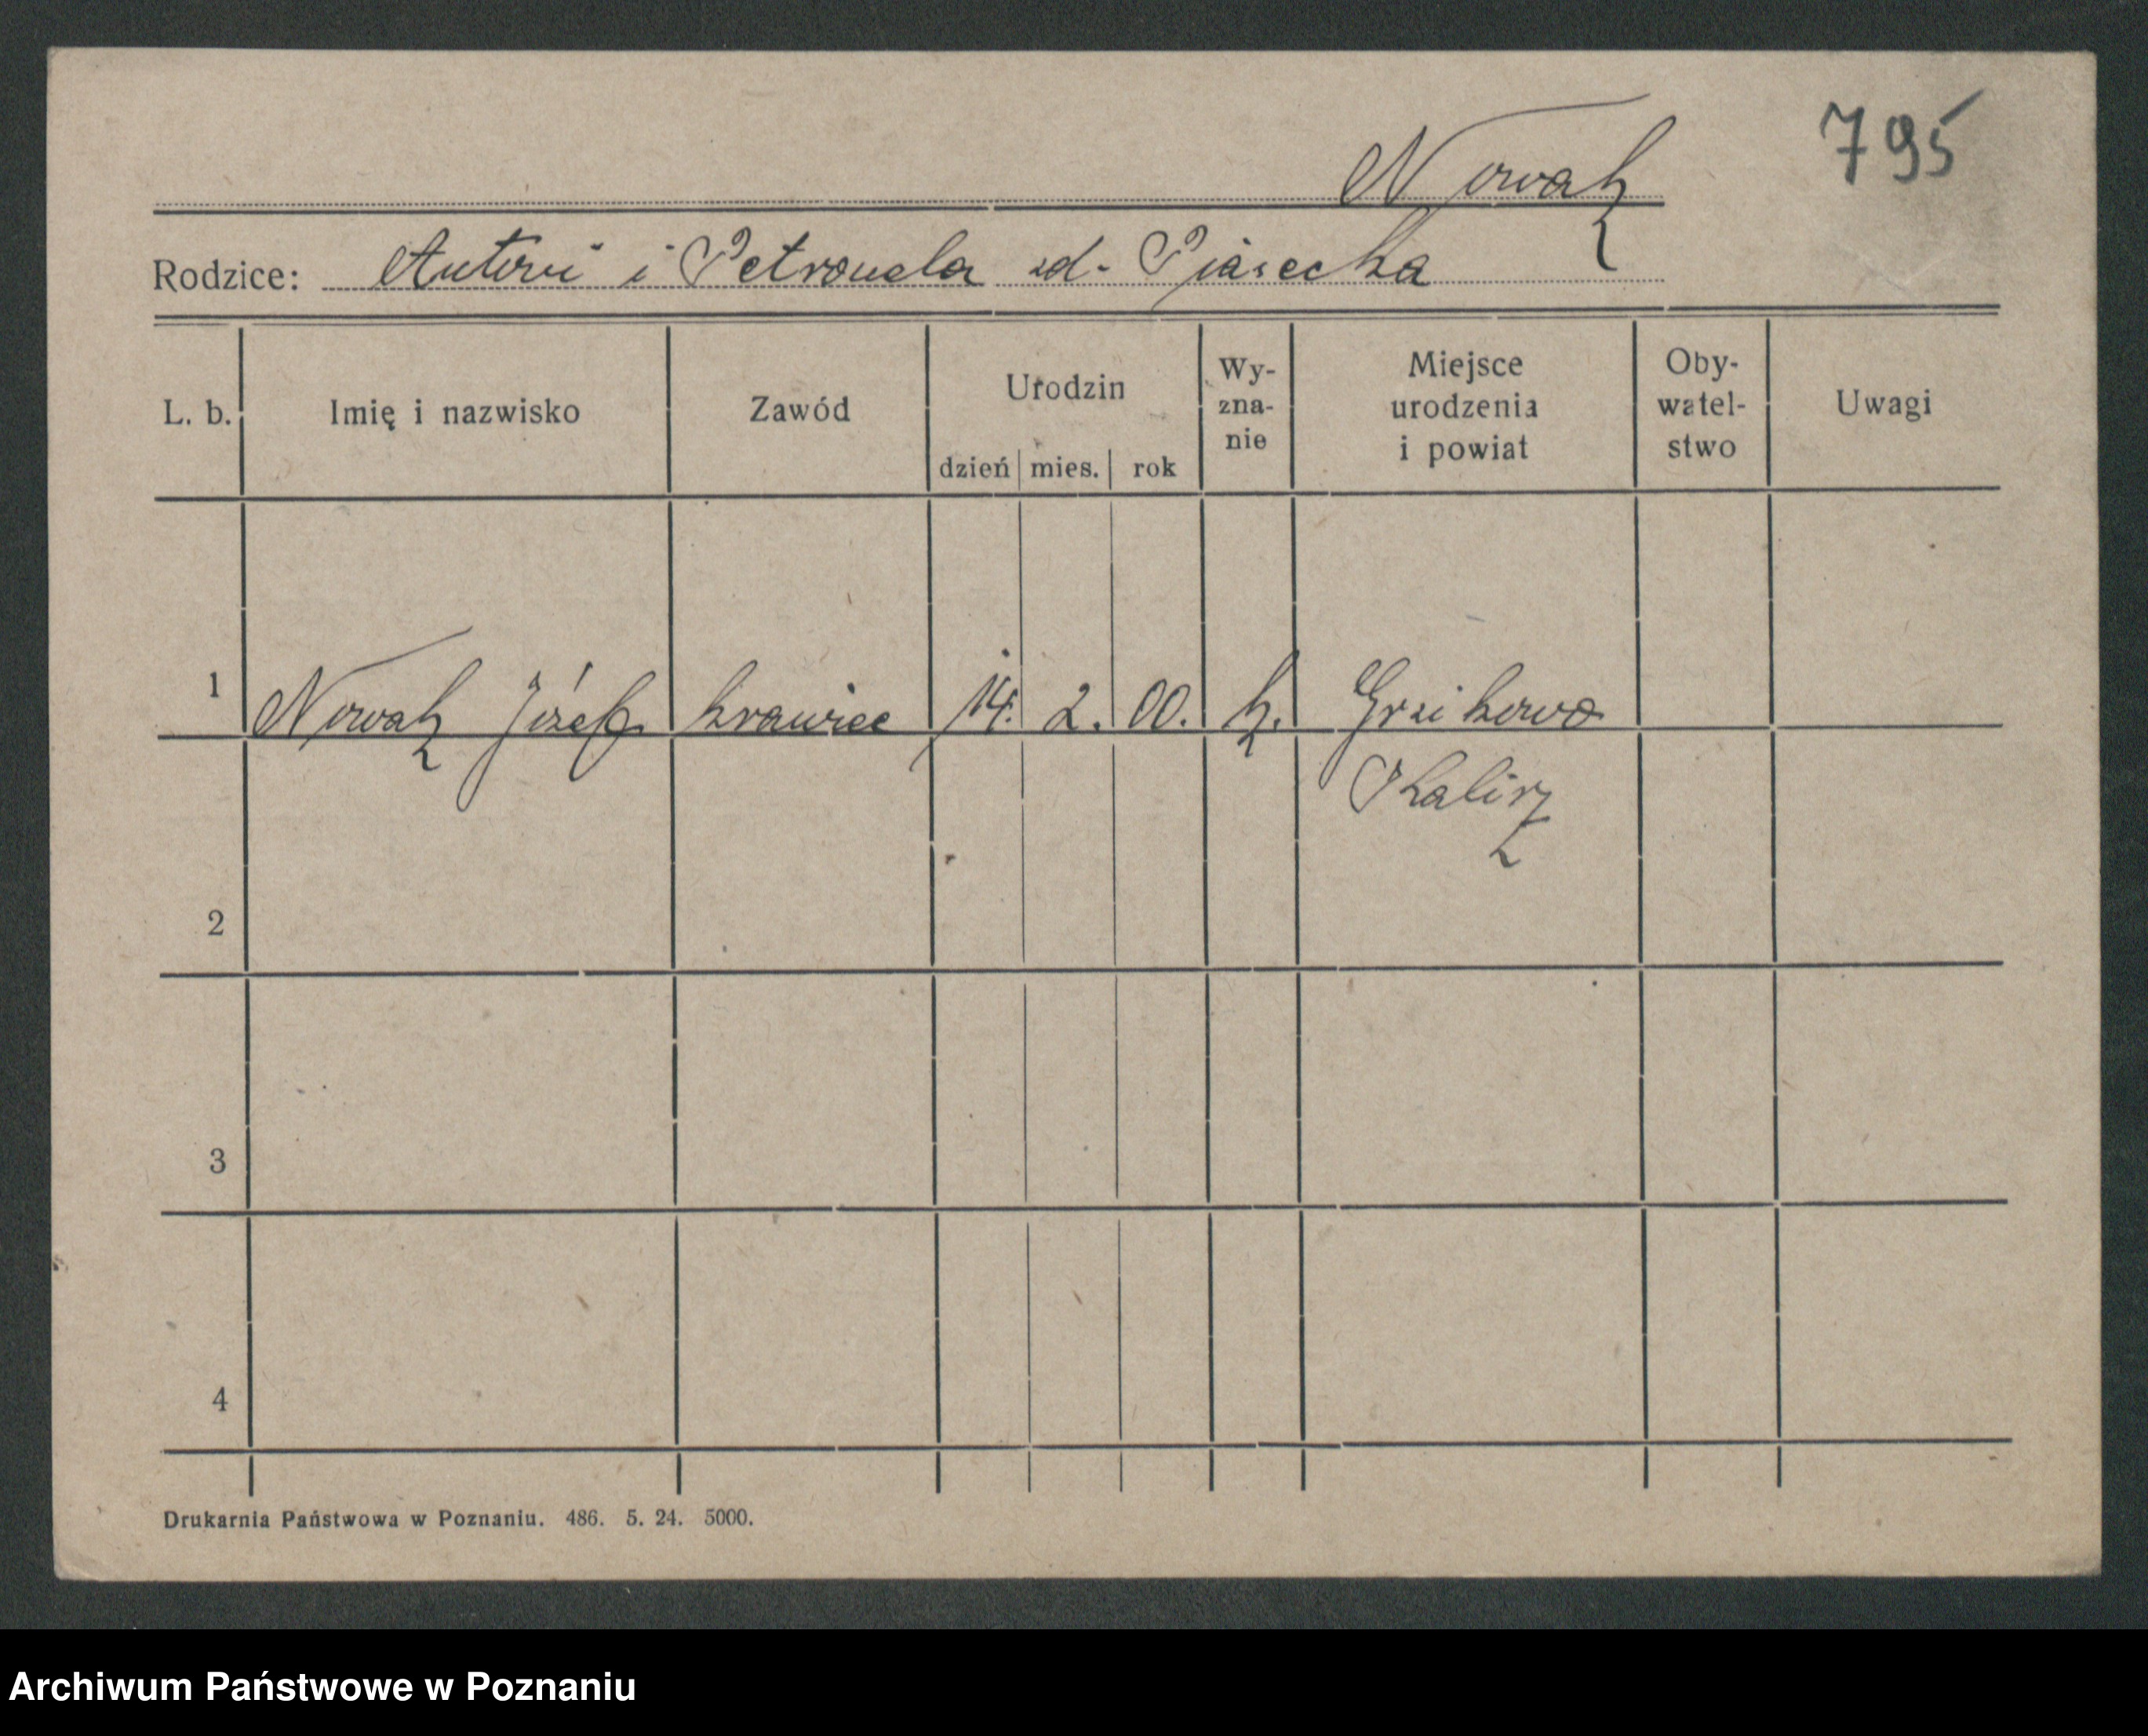 795
Nowak
Rodzice: Antoni i Petronela zd. Piasecka
L. b. Imię i nazwisko Zawód Urodzin dzień mies. rok Wy-zna-nie Miejsce urodzenia i powiat Oby-watel-stwo Uwagi
1 Nowak Józef krawiec 14. 2. 00. k. Grzikowo
Kalisz
2
3
4
Drukarnia Państwowa w Poznaniu. 486. 5. 24. 5000.
Archiwum Państwowe w Poznaniu